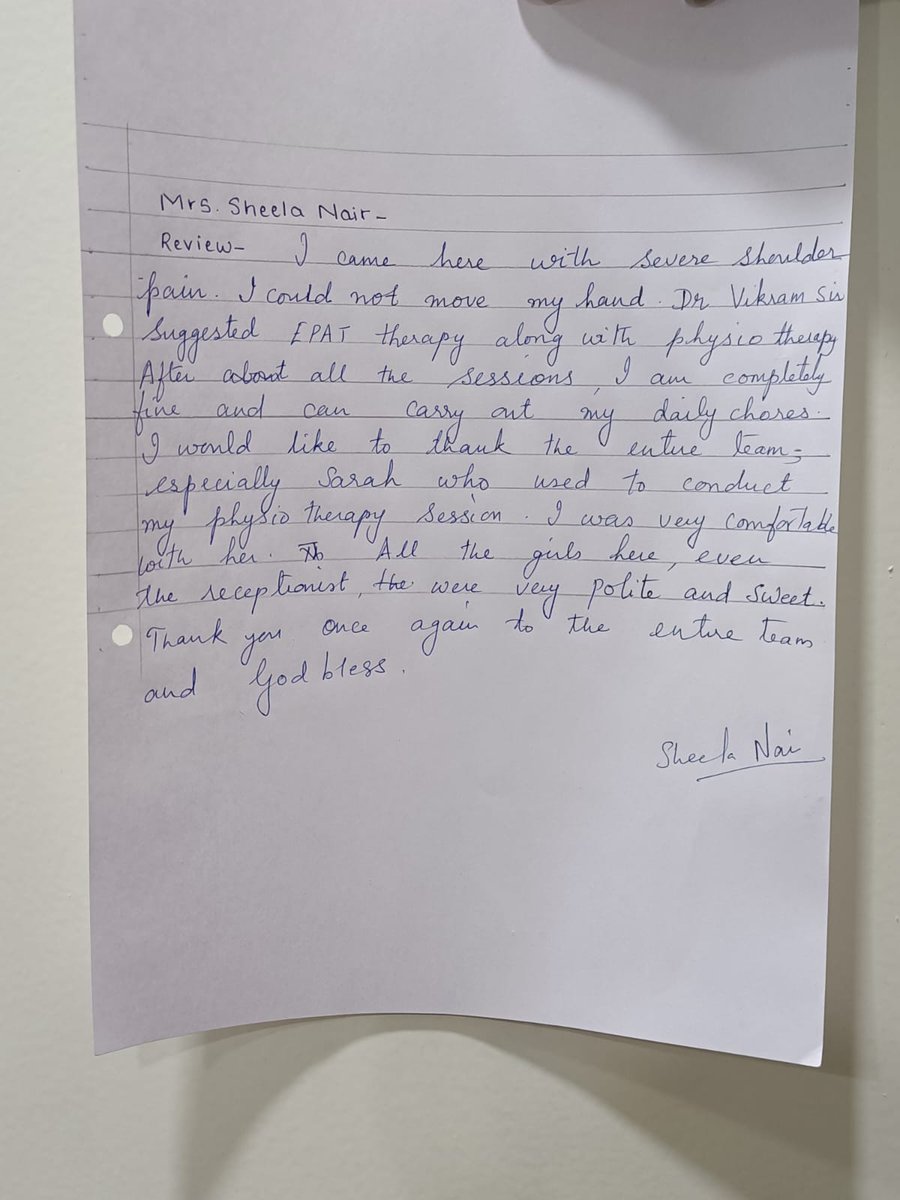 Mrs. Sheela Nair-
Review- I came here with severe shoulder
pain. I could not move my hand. Dr Vikram Sir
Suggested EPAT therapy along with physio therapy
After about all the sessions, I am completely
fine and can carry out my daily chores.
I would like to thank the entire team,
especially Sarah who used to conduct
my physio therapy session. I was very comfortable
with her. All the girls here, even
the receptionist, the were very polite and sweet.
Thank you once again to the entire team
and God bless.
Sheela Nai